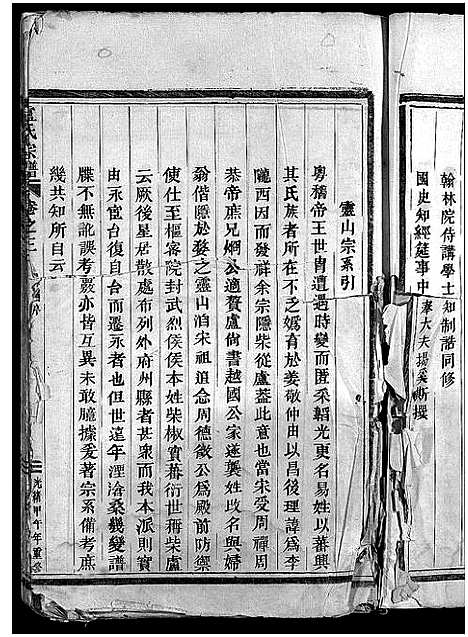 翰林院侍講學士知制誥同修
國史知經筵事中奉大夫揭奚斯撰
靈山宗系引
粵稽帝王世胄遭遇時變而匿采韜光更名易姓以蕃興
其氏族者所在不乏媯育於姜敬仲由以昌後理諱為李
隴西因而發祥余宗隱柴從盧葢此意也當宋受周禪周
恭帝庶兄婣公適贅盧尚書越國公家遂襲姓改名與婦
翁偕隱於婺之靈山洎宋祖追念周德徵公為殿前防禦
使仕至樞密院封武烈侯侯本姓柴椒實蕃衍世稱柴盧
云厥後星居散處布列外府州縣者甚衆而我本派則實
由永宦台復自台而遷永者也但世遠年湮滄桑幾變譜
牒不無訛誤考覈亦皆互異未敢臆據爰著宗系備考庶
幾共知所自云
盧氏宗譜
卷之三
光緒甲午年重修